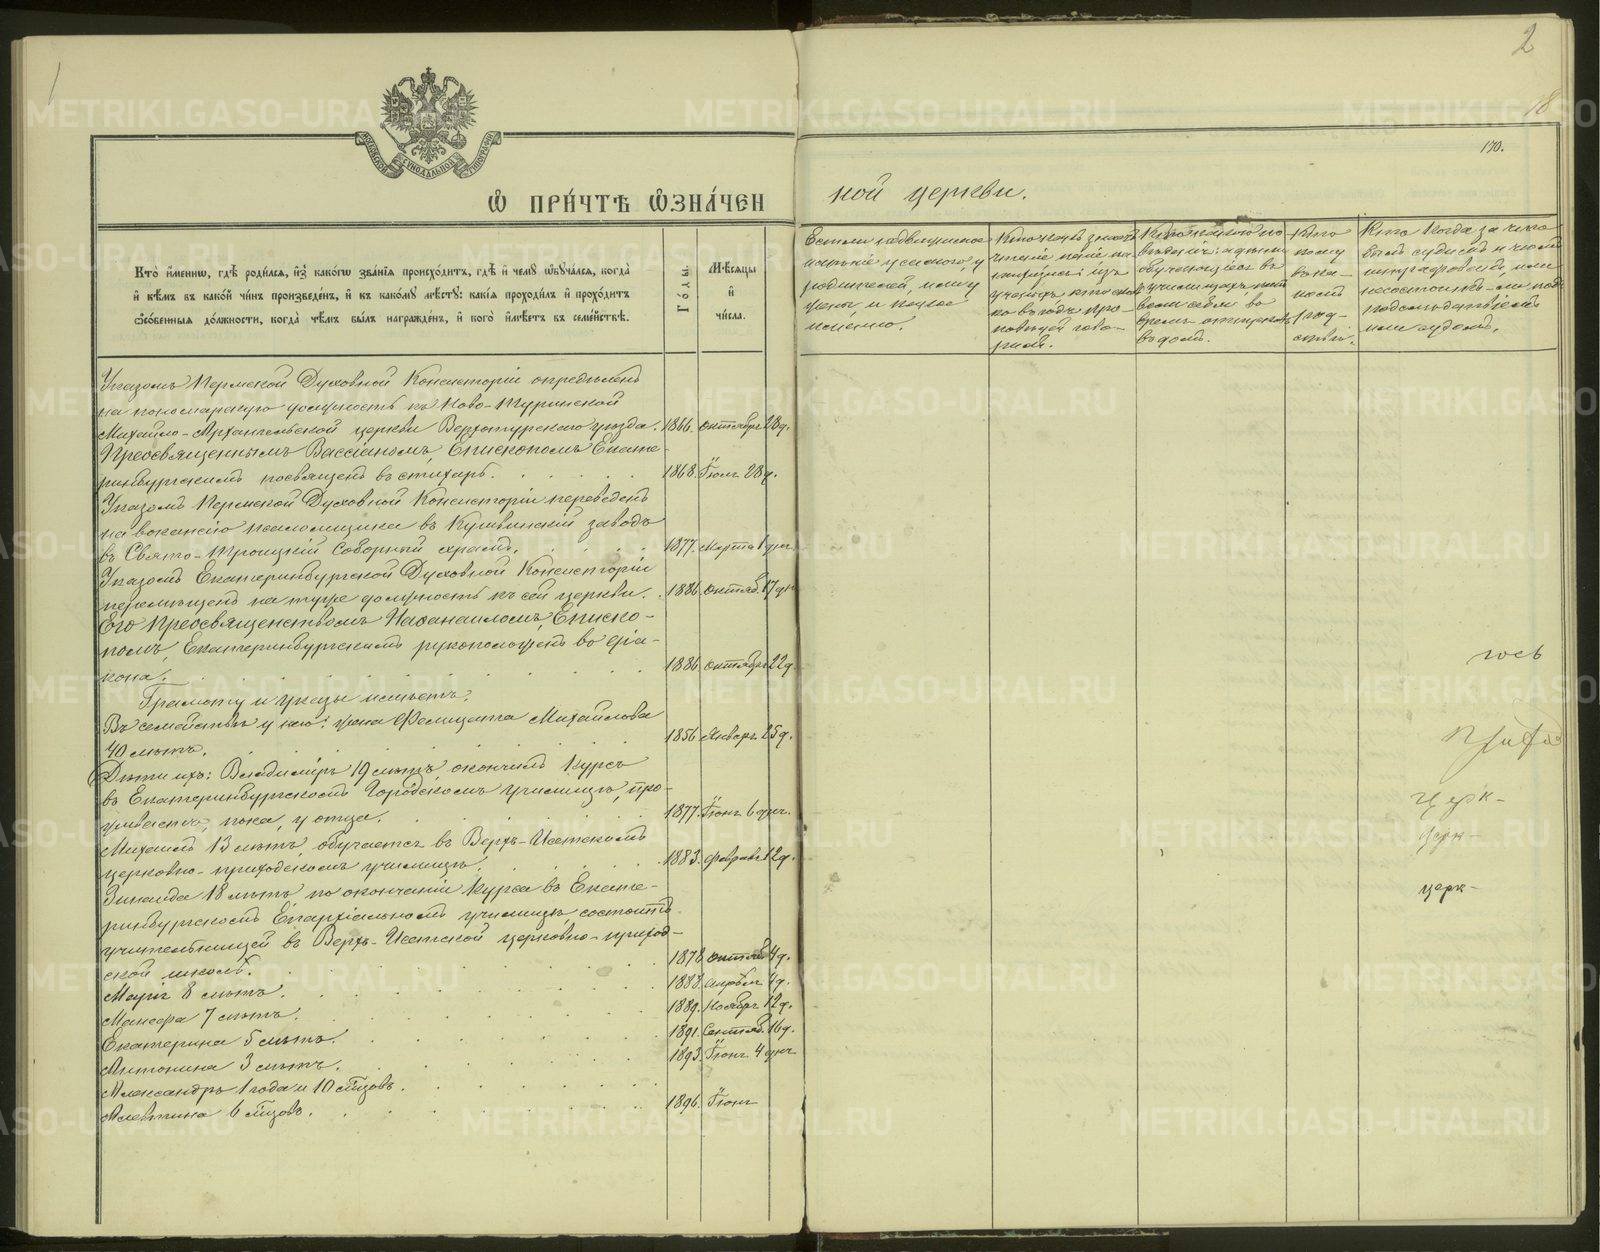 1
2
18
170.
МОСКОВСКОЙ СУНОДАЛЬНОЙ ТИПОГРАФІИ
Ѡ ПРИ́ЧТѢ ѠЗНА́ЧЕН
ной церкви.
Кто̀ и҆́менно, гдѣ̀ роди́лсѧ, и҆з̾ како́гѡ зва́нїѧ происхо́дитъ, гдѣ̀ и҆ чемꙋ̀ ѡ҆бꙋча́лсѧ, когда̀
и҆ кѣ́мъ въ како́й чи́нъ произведе́нъ, и҆ къ како́мꙋ мѣ́стꙋ: какі̑ѧ проходи́лъ и҆ прохо́дитъ
ѻ҆со́бенныѧ до́лжности, когда̀ чѣ́мъ бы́лъ награжде́нъ, и҆ кого̀ и҆мѣ́етъ въ семе́йствѣ.
Го́ды.
Мѣ́сѧцы
и҆
чи́сла.
Есть ли недвижимое
имѣніе у самого, у
родителей, или у
жены, и какое
именно.
Указомъ Пермской Духовной Консисторіи опредѣленъ
на пономарскую должность къ Ново-Туринской
Михайло-Архангельской церкви Верхотурскаго уѣзда. 1866. Октября 28 д.
Преосвященнымъ Вассіаномъ, Епископомъ Екате-
ринбургскимъ посвященъ въ стихарь. 1868. Іюля 28 д.
Указомъ Пермской Духовной Консисторіи переведенъ
на вакансію псаломщика въ Кушвинскій заводъ
въ Свято-Троицкій Соборный храмъ. 1877. Марта 1 дня.
Указомъ Екатеринбургской Духовной Консисторіи
перемѣщенъ на туже должность къ сей церкви. 1886. Октяб. 17 дня
Его Преосвященствомъ Наѳанаиломъ, Еписко-
помъ Екатеринбургскимъ рукоположенъ во діа-
кона. 1886. Октября 22 д.
Грамоту и указы имѣетъ.
Въ семействѣ у него: жена Фелицата Михайлова
40 лѣтъ. 1856. Января 25 д.
Дѣти ихъ: Владиміръ 19 лѣтъ, окончилъ курсъ
въ Екатеринбургскомъ Городскомъ училищѣ, про-
живаетъ, пока, у отца. 1877. Іюня 6 дня.
Михаилъ 13 лѣтъ, обучается въ Верхъ-Исетскомъ
церковно-приходскомъ училищѣ. 1883. Февраля 12 д.
Зинаида 18 лѣтъ, по окончаніи курса въ Екате-
ринбургскомъ Епархіальномъ училищѣ, состоитъ
учительницей въ Верхъ-Исетской церковно-приход-
ской школѣ. 1878. Октяб. 4 д.
Марія 8 лѣтъ. 1888. Апрѣля 4 д.
Манефа 7 лѣтъ. 1889. Ноября 12 д.
Екатерина 5 лѣтъ. 1891. Сентяб. 16 д.
Антонина 3 лѣтъ. 1893. Іюня 4 дня
Александръ 1 года и 10 м҃цовъ.
Алевтина 6 м҃цовъ. 1896. Іюня
церк-
церк-
церк-